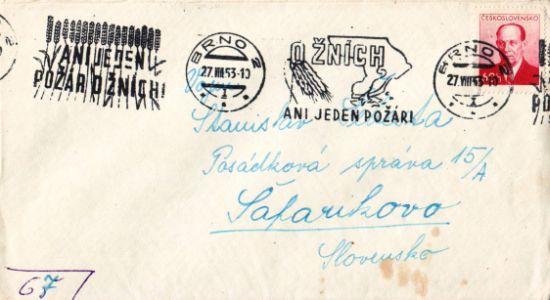 ČESKOSLOVENSKO
ANI JEDEN
POŽÁR O ŽNÍCH!
BRNO 2
27.VIII.53-10
O ŽNÍCH
ANI JEDEN POŽÁR!
BRNO 2
27.VIII.53-10
Stanislav
Posádková správa 15/A
Šafarikovo
Slovensko
67